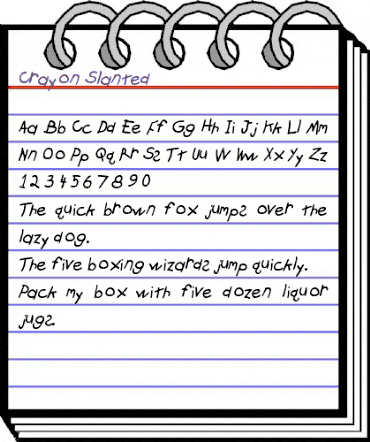 Crayon Slanted
Aa Bb Cc Dd Ee Ff Gg Hh Ii Jj Kk Ll Mm
Nn Oo Pp Qq Rr Ss Tt Uu Vv Ww Xx Yy Zz
1 2 3 4 5 6 7 8 9 0
The quick brown fox jumps over the
lazy dog.
The five boxing wizards jump quickly.
Pack my box with five dozen liquor
jugs.